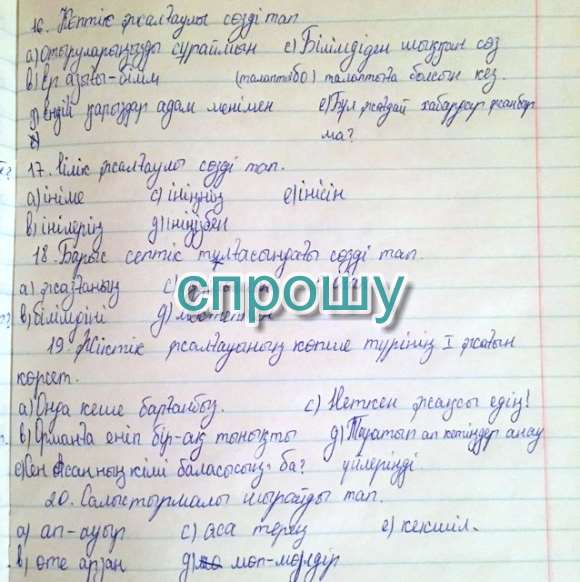 16. Көптік жалғаулы сөзді тап
а) Отыруларыңызды сұраймын с) Білімдіден шыққан сөз
в) Ер азығы-білім (талаптыбо) талаптыға болсын кез.
д) қарыздар адам менімен е) Бұл жағдай хабардар жанбар
ма?
17. Ілік жалғаулы сөзді тап.
а) ініме с) ініңнің е) інісін
в) інілерің д) ініңізбен
18. Барыс септік тұлғасындағы сөзді тап.
а) жазғаның с)
в) білімдіні д)
спрошу
19. Жіктік жалғауының көпше түрінің I жағын
көрсет.
а) Онда кеше барғанбыз. с) Неткен жақсы едің!
в) Орманға еніп бір-ақ тынықты д) Тауатып ап кетіңдер анау
е) Сен Асанның кіші баласысың ба? үйлеріңді.
20. Салыстырмалы шырайды тап.
а) ап-ауыр с) аса терең е) кекшіл.
в) өте арзан д) мөп-мөлдір